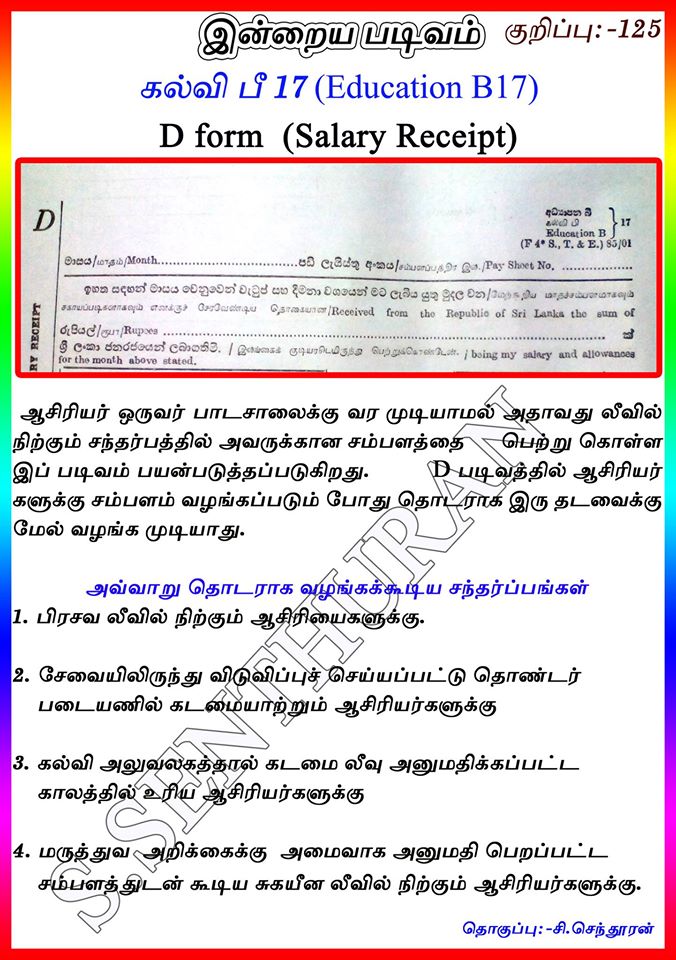 இன்றைய படிவம்
குறிப்பு:-125
கல்வி பீ 17 (Education B17)
D form (Salary Receipt)
D
අධ්‍යාපන බී
கல்வி பி
Education B
17
(F 4* S., T. & E.) 85/01
මාසය/மாதம்/Month.................... පඩි ලැයිස්තු අංකය/சம்பளப்பத்திர இல./Pay Sheet No. ..................
ඉහත සඳහන් මාසය වෙනුවෙන් වැටුප් සහ දීමනා වශයෙන් මට ලැබිය යුතු මුදල වන/மேற்கூறிய மாதச்சம்பளமாகவும்
சகாயப்படிகளாகவும் எனக்குச் சேரவேண்டிய தொகையான/Received from the Republic of Sri Lanka the sum of
රුපියල්/ரூபா/Rupees .................... ක්
ශ්‍රී ලංකා ජනරජයෙන් ලබාගතිමි. / இலங்கைக் குடியரசிடமிருந்து பெற்றுக்கொண்டேன். / being my salary and allowances
for the month above stated.
RY RECEIPT
ஆசிரியர் ஒருவர் பாடசாலைக்கு வர முடியாமல் அதாவது லீவில்
நிற்கும் சந்தர்பத்தில் அவருக்கான சம்பளத்தை பெற்று கொள்ள
இப் படிவம் பயன்படுத்தப்படுகிறது. D படிவத்தில் ஆசிரியர்
களுக்கு சம்பளம் வழங்கப்படும் போது தொடராக இரு தடவைக்கு
மேல் வழங்க முடியாது.
அவ்வாறு தொடராக வழங்கக்கூடிய சந்தர்ப்பங்கள்
1. பிரசவ லீவில் நிற்கும் ஆசிரியைகளுக்கு.
2. சேவையிலிருந்து விடுவிப்புச் செய்யப்பட்டு தொண்டர்
படையணில் கடமையாற்றும் ஆசிரியர்களுக்கு
3. கல்வி அலுவலகத்தால் கடமை லீவு அனுமதிக்கப்பட்ட
காலத்தில் உரிய ஆசிரியர்களுக்கு
4. மருத்துவ அறிக்கைக்கு அமைவாக அனுமதி பெறப்பட்ட
சம்பளத்துடன் கூடிய சுகயீன லீவில் நிற்கும் ஆசிரியர்களுக்கு.
S.SENTHURAN
தொகுப்பு:-சி.செந்தூரன்